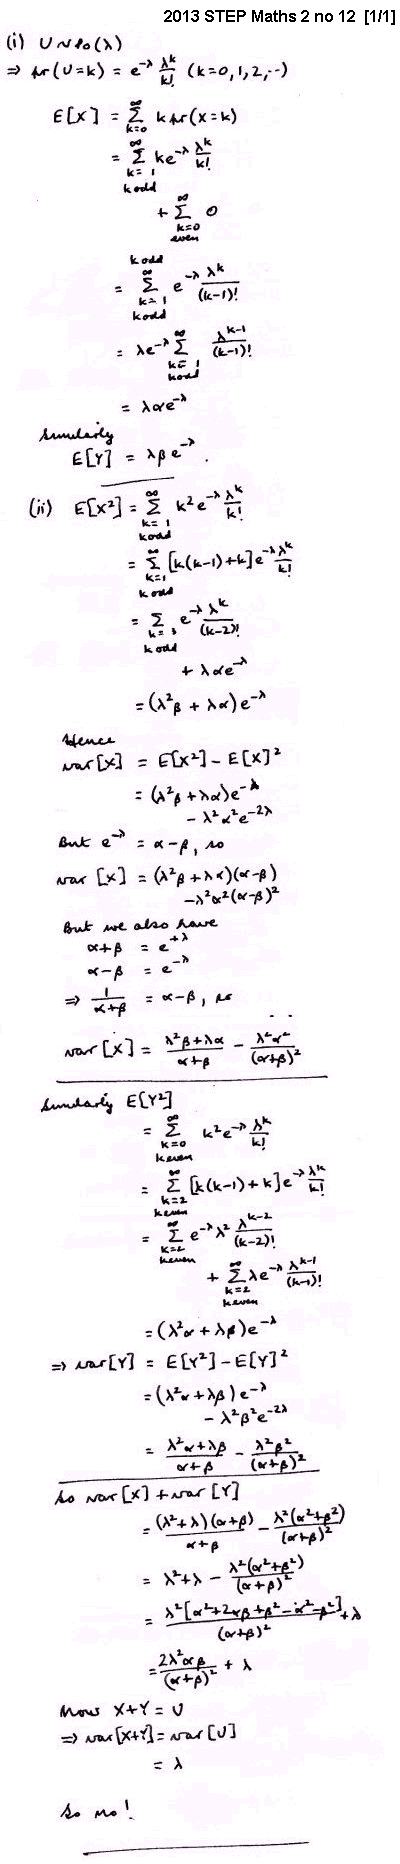 2013 STEP Maths 2 no 12 [1/1]
(i) U ~ Po(λ)
⇒ pr(U=k) = e^{-λ} λ^k/k! (k=0,1,2,...)
E[X] = Σ_{k=0}^∞ k pr(X=k)
= Σ_{k=1, k odd}^∞ k e^{-λ} λ^k/k!
+ Σ_{k=0, even}^∞ 0
k odd
= Σ_{k=1, k odd}^∞ e^{-λ} λ^k/(k-1)!
= λe^{-λ} Σ_{k=1, k odd}^∞ λ^{k-1}/(k-1)!
= λαe^{-λ}
Similarly
E[Y] = λβe^{-λ}.
(ii) E[X²] = Σ_{k=1, k odd}^∞ k² e^{-λ} λ^k/k!
= Σ_{k=1, k odd}^∞ [k(k-1)+k] e^{-λ} λ^k/k!
= Σ_{k=3, k odd} e^{-λ} λ^k/(k-2)!
+ λαe^{-λ}
= (λ²β + λα)e^{-λ}
Hence
var[X] = E[X²] - E[X]²
= (λ²β + λα)e^{-λ}
- λ²α²e^{-2λ}
But e^{-λ} = α-β, so
var [X] = (λ²β + λα)(α-β)
-λ²α²(α-β)²
But we also have
α+β = e^{+λ}
α-β = e^{-λ}
⇒ 1/(α+β) = α-β, so
var [X] = (λ²β+λα)/(α+β) - λ²α²/(α+β)²
Similarly E[Y²]
= Σ_{k=0, k even}^∞ k² e^{-λ} λ^k/k!
= Σ_{k=2, k even}^∞ [k(k-1)+k] e^{-λ} λ^k/k!
= Σ_{k=2, k even}^∞ e^{-λ} λ² λ^{k-2}/(k-2)!
+ Σ_{k=2, k even}^∞ λe^{-λ} λ^{k-1}/(k-1)!
= (λ²α + λβ)e^{-λ}
⇒ var[Y] = E[Y²] - E[Y]²
= (λ²α + λβ)e^{-λ}
- λ²β²e^{-2λ}
= (λ²α+λβ)/(α+β) - λ²β²/(α+β)²
So var [X] + var [Y]
= (λ²+λ)(α+β)/(α+β) - λ²(α²+β²)/(α+β)²
= λ²+λ - λ²(α²+β²)/(α+β)²
= λ²[α²+2αβ+β²-α²-β²]/(α+β)² + λ
= 2λ²αβ/(α+β)² + λ
Now X+Y = U
⇒ var[X+Y] = var[U]
= λ
So no!